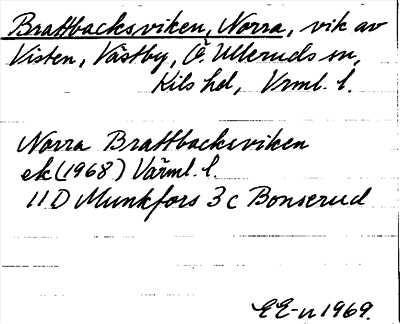 Brattbacksviken, Norra, vik av
Visten, Västby, Ö. Ulleruds sn,
Kils hd, Vrml. l.
Norra Brattbacksviken
ek (1968) Värml. l.
11D Munkfors 3c Bonserud
EE-n 1969.